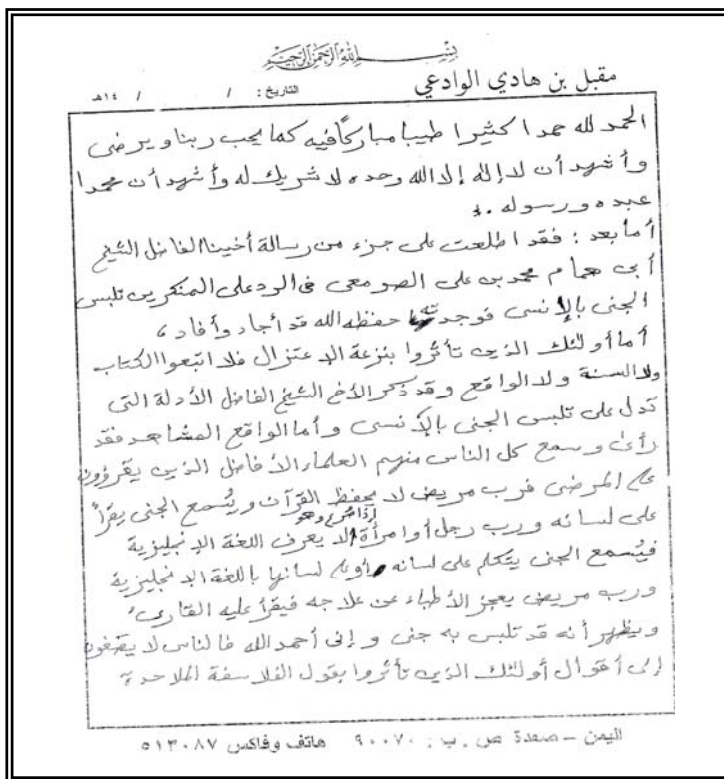 بسم الله الرحمن الرحيم
مقبل بن هادي الوادعي
التاريخ : / / ١٤هـ
الحمد لله حمدا كثيرا طيبا مباركًا فيه كما يحب ربنا ويرضى
وأشهد أن لا إله إلا الله وحده لا شريك له وأشهد أن محمدا
عبده ورسوله .
أما بعد : فقد اطلعت على جزء من رسالة أخينا الفاضل الشيخ
أبي همام محمد بن علي الصومعي في الرد على المنكرين تلبس
الجني بالإنسي فوجدته حفظه الله قد أجاد وأفاد ،
أما أولئك الذين تأثروا بنزعة الاعتزال فلا اتبعوا الكتاب
ولا السنة ولا الواقع وقد ذكر الأخ الشيخ الفاضل الأدلة التي
تدل على تلبس الجني بالإنسي وأما الواقع المشاهد فقد
رأى وسمع كل الناس منهم العلماء الأفاضل الذين يقرؤون
على المرضى فرب مريض لا يحفظ القرآن ويُسمع الجني يقرأ
على لسانه ورب رجل أو امرأة لا يعرف اللغة الإنجليزية
فيُسمع الجني يتكلم على لسانه أو على لسانها باللغة الإنجليزية
ورب مريض يعجز الأطباء عن علاجه فيقرأ عليه القارئ
ويظهر أنه قد تلبس به جني وإني أحمد الله فالناس لا يصغون
إلى أقوال أولئك الذين تأثروا بقول الفلاسفة الملاحدة
اليمن – صعدة ص . ب : ٩٠٠٧٠ هاتف وفاكس ٥١٣٠٨٧